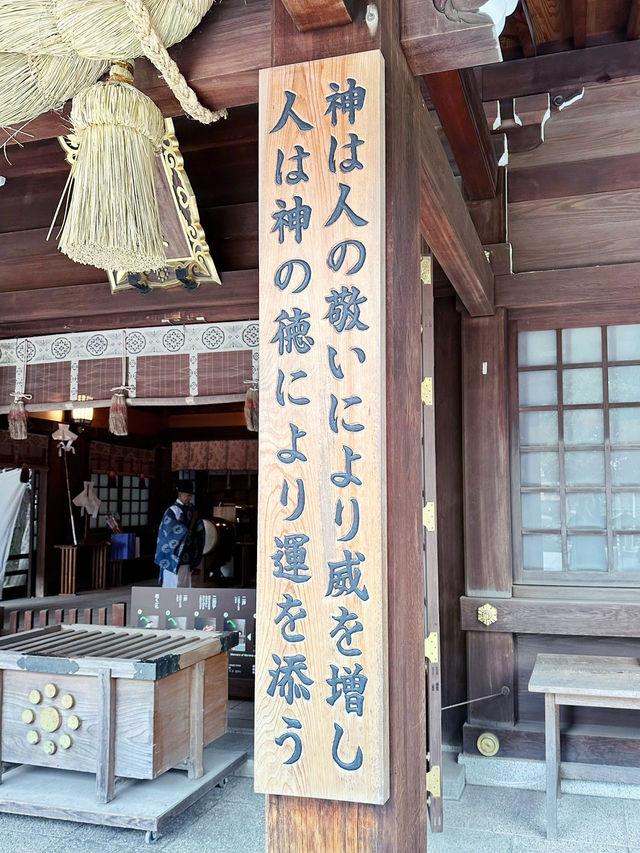 神は人の敬いにより威を増し
人は神の徳により運を添う